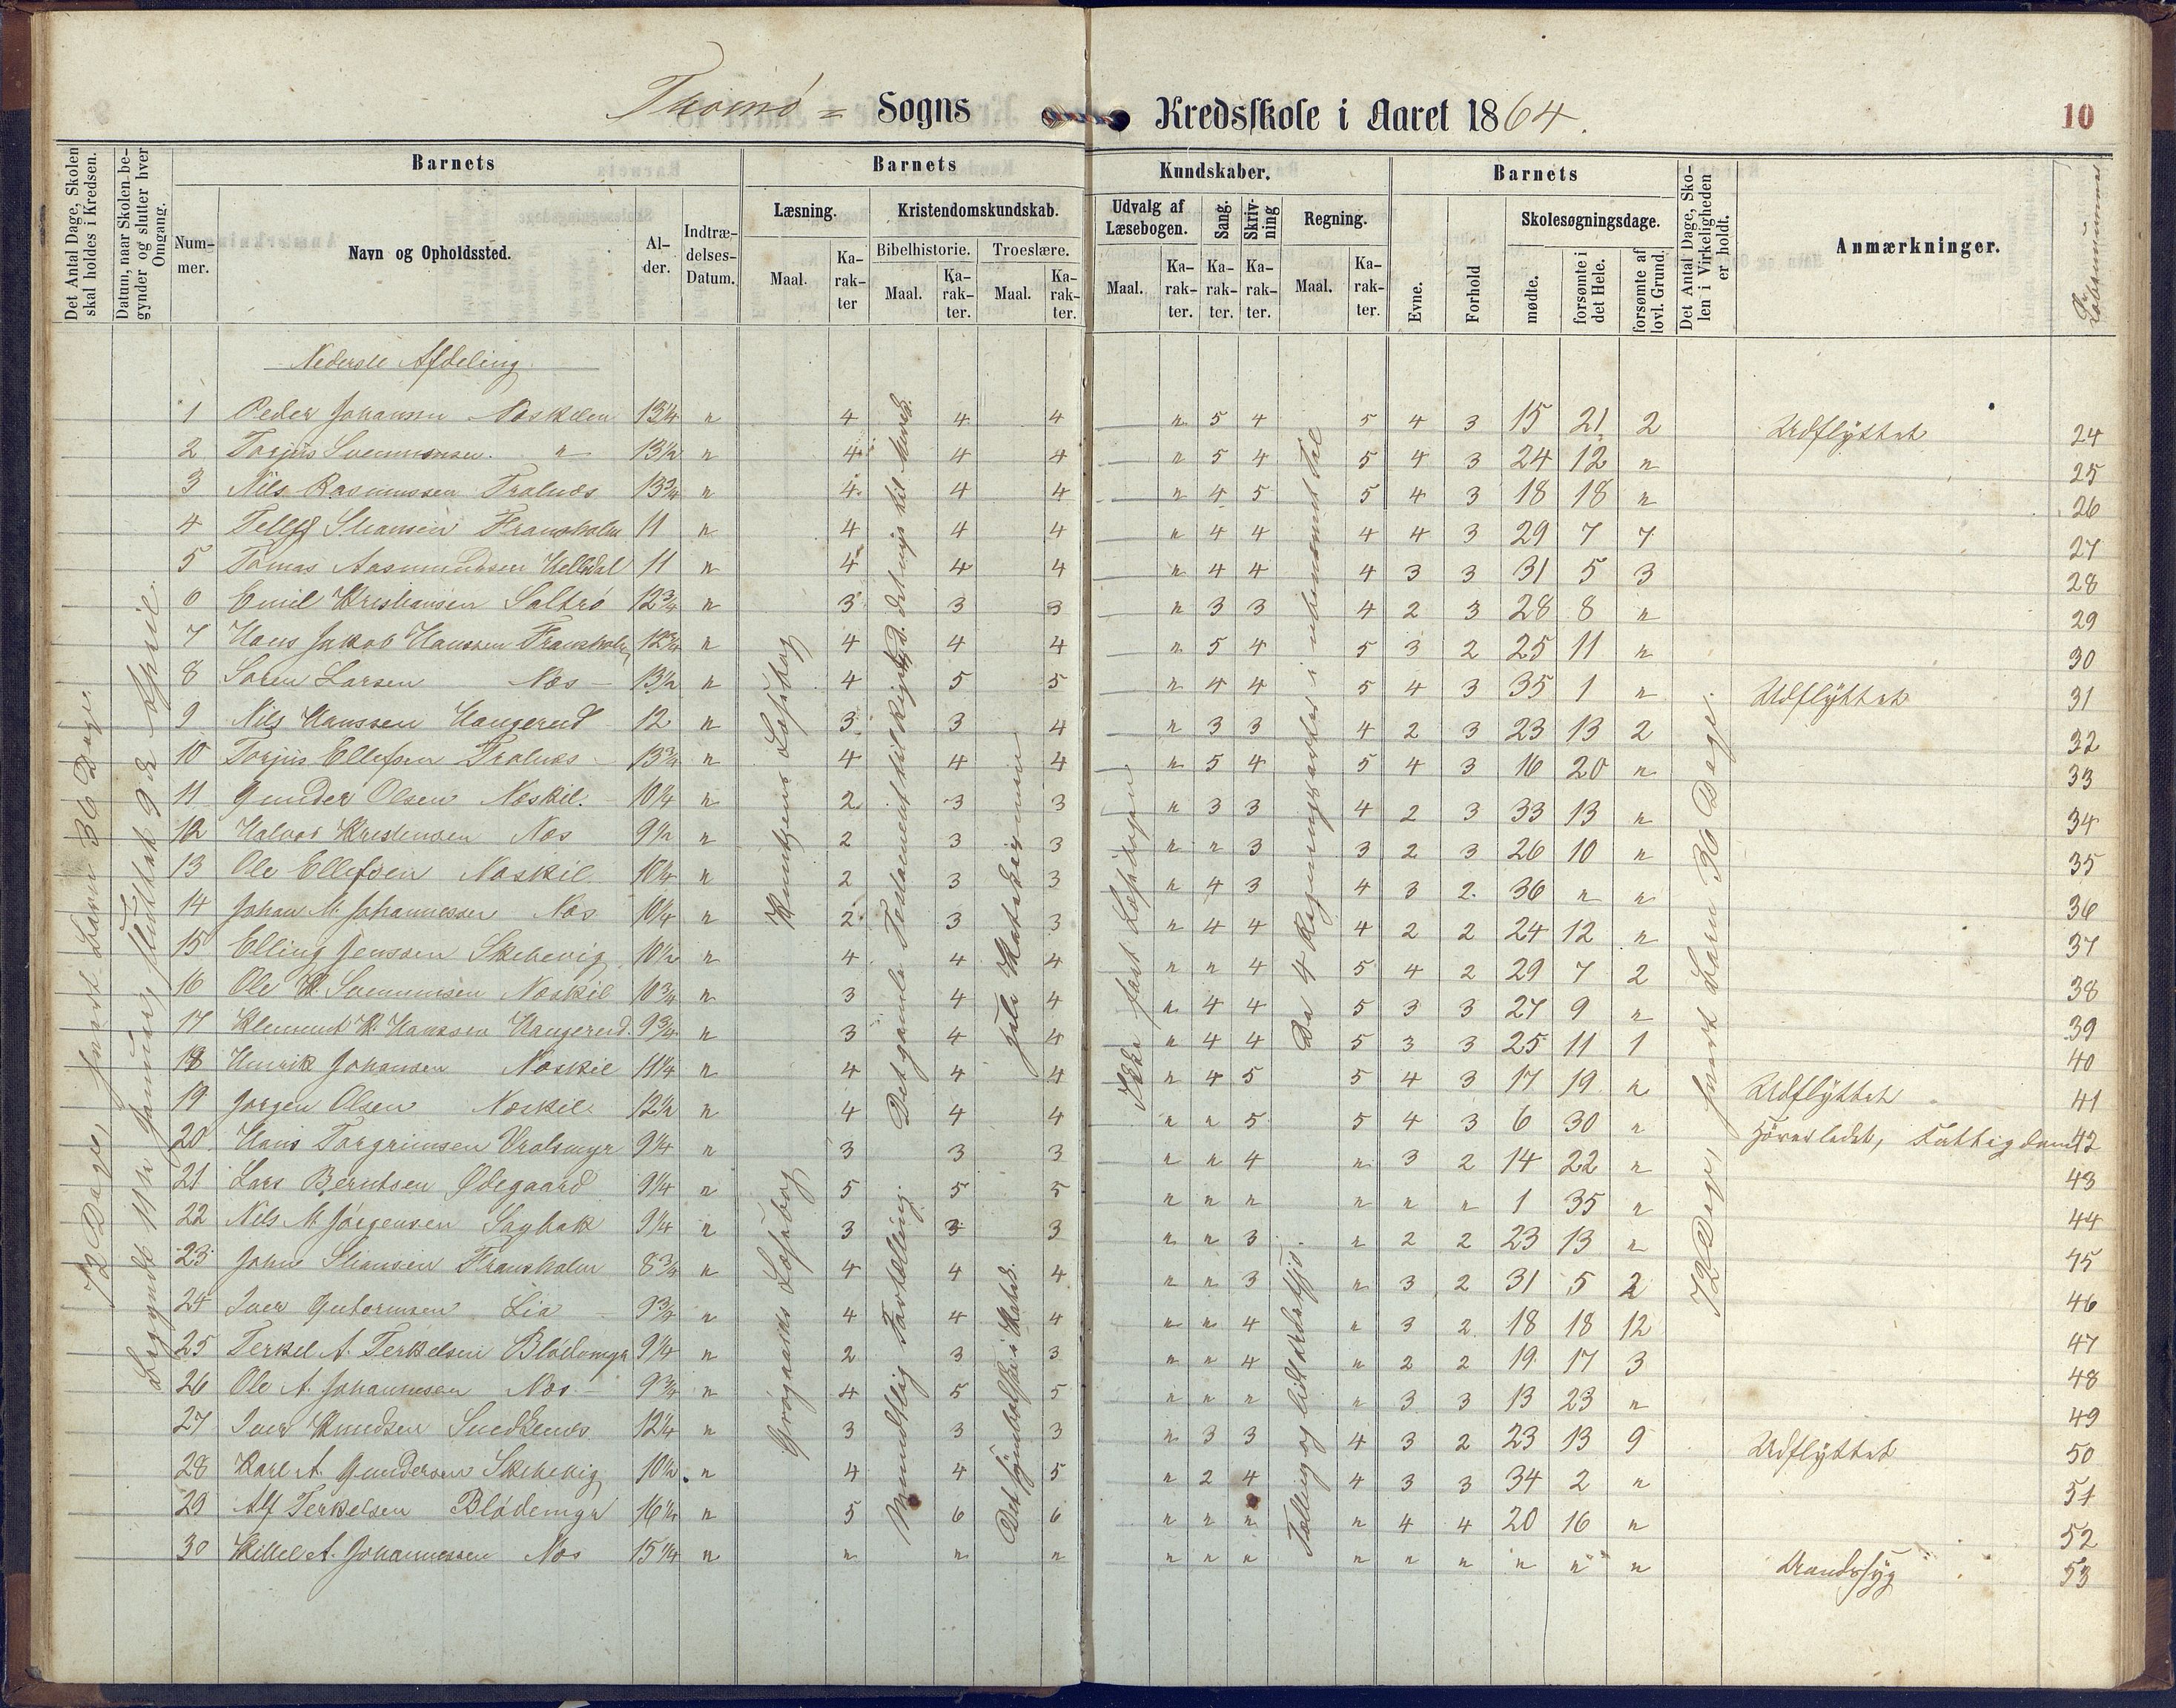 Tromø = Sogns Kredsskole i Aaret 1864.
10
Det Antal Dage, Skolen skal holdes i Kredsen.
Datum, naar Skolen begynder og slutter hver Omgang.
Barnets
Barnets
Kundskaber.
Barnets
Det Antal Dage, Skolen i Virkeligheden er holdt.
Anmærkninger.
Nummer.
Navn og Opholdssted.
Alder.
Indtrædelses-Datum.
Læsning.
Kristendomskundskab.
Udvalg af Læsebogen.
Sang.
Skrivning
Regning.
Evne.
Forhold
Skolesøgningsdage.
Bibelhistorie.
Troeslære.
Maal.
Karakter
Maal.
Karakter.
Maal.
Karakter.
Maal.
Karakter.
Karakter.
Karakter.
Maal.
Karakter.
mødte.
forsømte i det Hele.
forsømte af lovl. Grund.
Løbenummer
Nederste Afdeling
1 Peder Johansen Næskilen 13¼ " 4 4 4 " 5 4 5 4 3 15 21 2 Udflyttet 24
2 Torjus Svenningsen " 13½ " 4 4 4 " 5 4 5 4 3 24 12 " 25
3 Nils Rasmussen Tralnæs 13¾ " 4 4 4 " 4 5 5 4 3 18 18 " 26
4 Tellef Stiansen Fransholm 11 " 4 4 4 " 4 4 4 4 3 29 7 7 27
5 Tomas Aasmundsen Helledal 11 " 4 4 4 " 4 4 4 3 3 31 5 3 28
6 Emil Kristiansen Saltrø 12¾ " 3 3 3 " 3 3 4 2 3 28 8 " 29
7 Hans Jakob Hanssen Fransholm 12¾ " 4 4 4 " 5 4 5 3 2 25 11 " 30
8 Søren Larsen Næs 13½ " 4 5 5 " 4 4 5 4 3 35 1 " Udflyttet 31
9 Nils Hanssen Haugerud 12 " 3 3 4 " 3 3 4 2 3 23 13 2 32
10 Torjus Ellefsen Tralnæs 13¾ " 4 4 4 " 5 4 5 4 3 16 20 " 33
11 Gunder Olsen Næskil. 10¼ " 2 3 3 " 3 3 4 2 3 33 13 " 34
12 Halvor Kristensen Næs 9½ " 2 3 3 " " 3 3 2 3 26 10 " 35
13 Ole Ellefsen Næskil 10¼ " 2 3 3 " 4 3 4 3 2 36 " " 36
14 Johan M. Johannessen Næs 10¼ " 2 3 3 " 4 4 4 2 2 24 12 " 37
15 Elling Jenssen Skibevig 10½ " 4 4 4 " " 4 5 4 2 29 7 2 38
16 Ole K. Svennumsen Næskil 10¾ " 3 4 4 " 4 4 5 3 3 27 9 " 39
17 Klement K. Hanssen Haugerud. 9¾ " 3 4 4 " 4 4 5 3 3 25 11 1 40
18 Henrik Johansen Næskil 11¼ " 4 4 4 " 4 5 5 4 3 17 19 " Udflyttet 41
19 Jørgen Olsen Næskil 12½ " 4 4 4 " " 5 5 4 3 6 30 " 42
20 Hans Torgrimsen Vralsmyr 9¼ " 3 3 3 " " 4 " 3 2 14 22 " 43
21 Lars Berntsen Ødegaard 9¼ " 5 5 5 " " " " " " 1 35 " 44
22 Nils M Jørgensen Sagbak 9¼ " 3 3 3 " " 3 " 2 2 23 13 " 45
23 John Stiansen Fransholm 8¾ " 4 4 4 " " 3 " 3 2 31 5 2 46
24 Iver Gutormsen Lia 9¾ " 4 4 4 " " 4 " 3 2 18 18 12 47
25 Terkel A. Terkelsen Blødemyr 9¼ " 2 3 3 " " 4 " 2 2 19 17 3 48
26 Ole A. Johannesen Næs 9¾ " 4 5 5 " " " " 3 3 13 23 " 49
27 Iver Knudsen Snedkernæs 12¼ " 3 3 3 " 3 3 4 3 2 23 13 9 Udflyttet 50
28 Karl A. Gundersen Skibevig 10½ " 4 4 5 " 2 4 4 3 3 34 2 " 51
29 Alf Terkelsen Blødemyr 16¼ " 5 6 6 " " " " 4 4 20 16 " 52
30 Kittel A. Johannessen Næs 15¼ " " " " " " " " " " " " " Aandssyg 53
72 Dage, hvert Barn 36 Dage.
Begyndt 11te Januar, sluttet 9de April.
Læsebog
Læsebog
Mundtlig Fortælling.
hele Katekismen
Ikke fast Læsebogen
De 4 Regningsarter i ubenævnt Tal
72 Dage, hvert Barn 36 Dage.